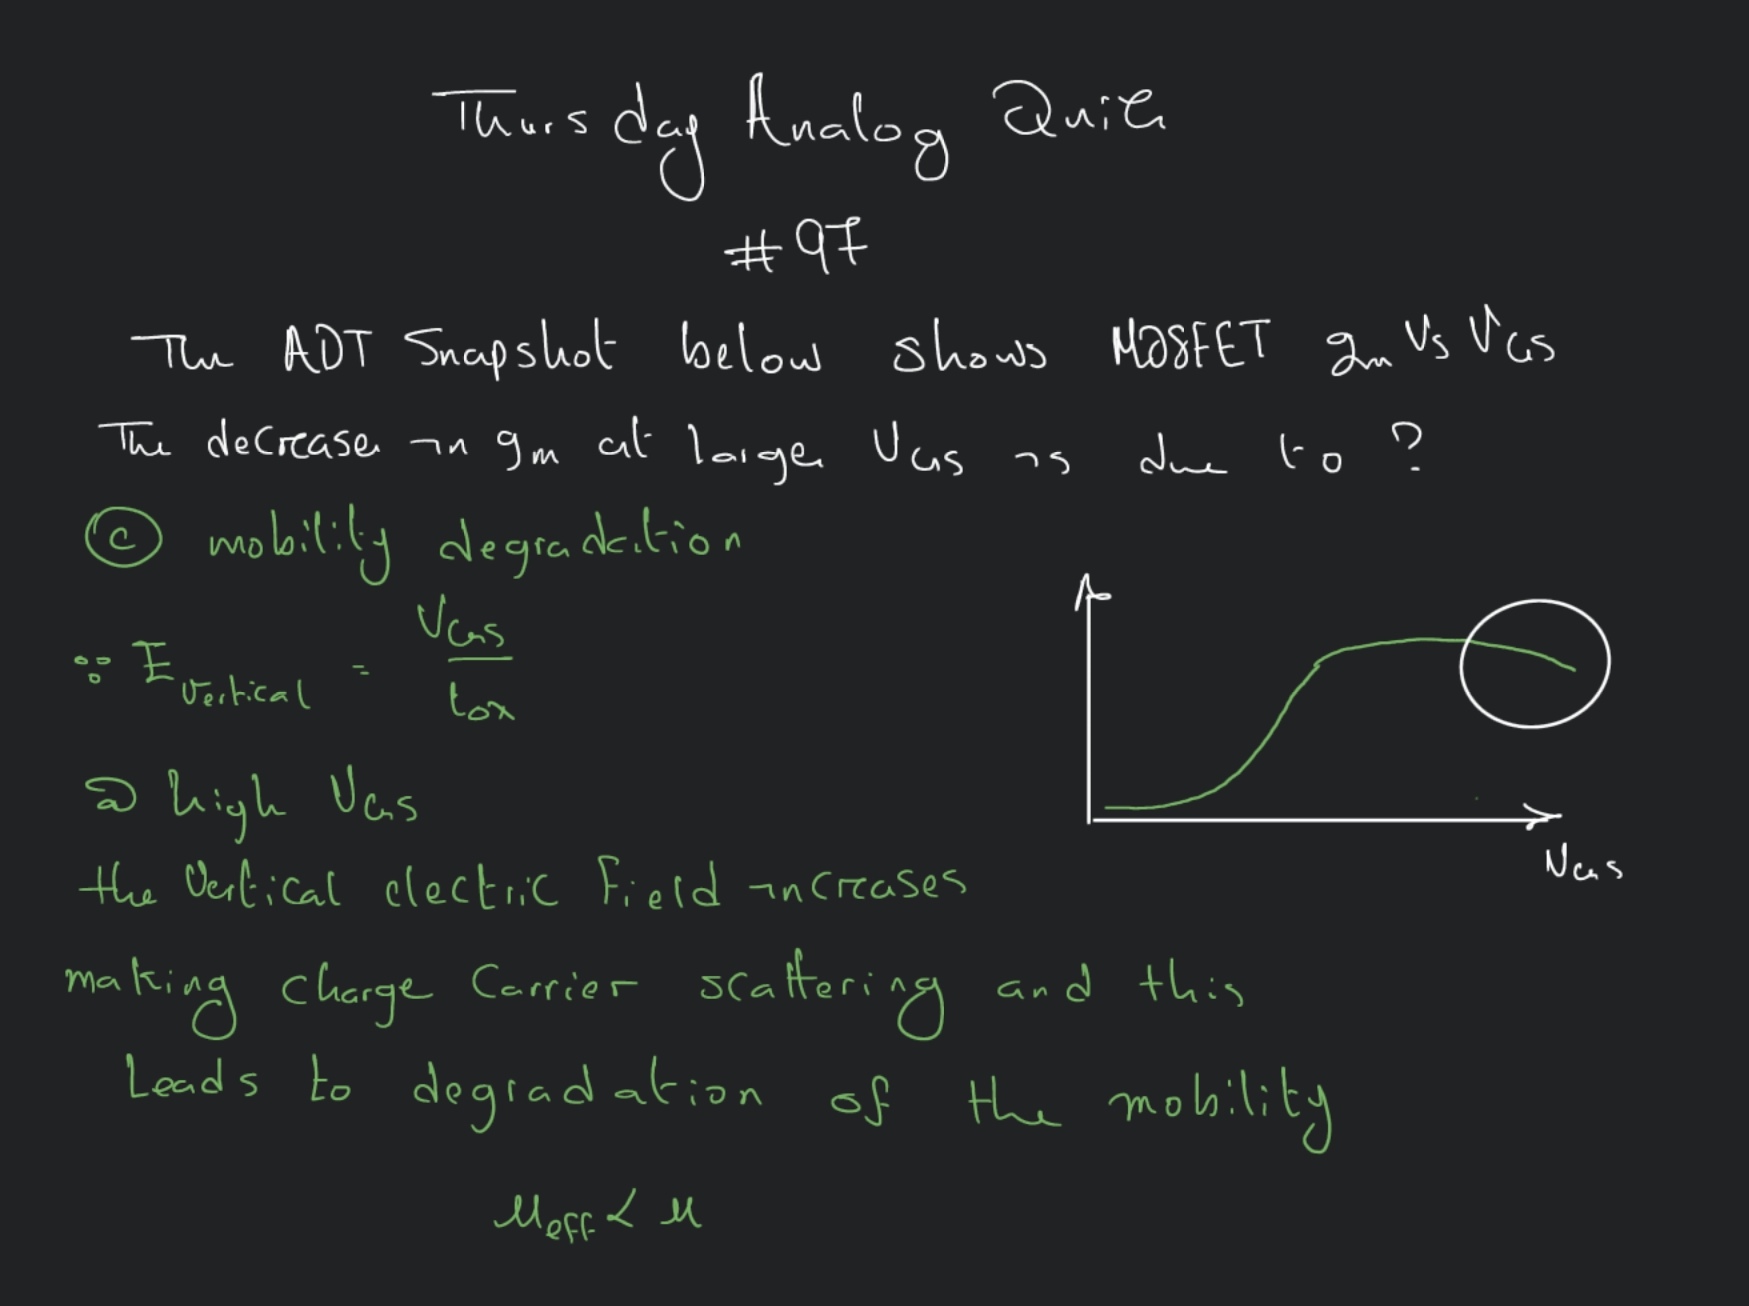 Thursday Analog Quiz
#97
The ADT Snapshot below shows MOSFET gm Vs VGS
The decrease in gm at large VGS is due to ?
(c) mobility degradation
∵ Evertical = VGS / tox
@ high VGS
the Vertical electric Field increases
making charge Carrier scattering and this
Leads to degradation of the mobility
μeff < μ
VGS